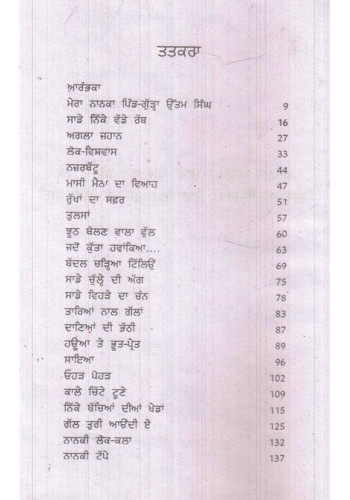 ਤਤਕਰਾ
ਆਰੰਭਕਾ
ਮੇਰਾ ਨਾਨਕਾ ਪਿੰਡ-ਗੁੱੜ੍ਹਾ ਉੱਤਮ ਸਿੰਘ 9
ਸਾਡੇ ਨਿੱਕੇ ਵੱਡੇ ਰੱਬ 16
ਅਗਲਾ ਜਹਾਨ 27
ਲੋਕ-ਵਿਸ਼ਵਾਸ 33
ਨਜ਼ਰਬੱਟੂ 44
ਮਾਸੀ ਮੈਨਾ ਦਾ ਵਿਆਹ 47
ਰੁੱਖਾਂ ਦਾ ਸਫ਼ਰ 51
ਤੁਲਸਾਂ 57
ਝੂਠ ਬੋਲਣ ਵਾਲਾ ਵੁੱਲ 60
ਜਦੋਂ ਕੁੱਤਾ ਹਵਾਂਕਿਆ.... 63
ਬੱਦਲ ਚੜ੍ਹਿਆ ਟਿੱਲਿਉਂ 69
ਸਾਡੇ ਚੁੱਲ੍ਹੇ ਦੀ ਅੱਗ 75
ਸਾਡੇ ਵਿਹੜੇ ਦਾ ਚੰਨ 78
ਤਾਰਿਆਂ ਨਾਲ ਗੱਲਾਂ 83
ਦਾਣਿਆਂ ਦੀ ਭੱਠੀ 87
ਹਊਆ ਤੇ ਭੂਤ-ਪ੍ਰੇਤ 89
ਸਾਇਆ 96
ਓਹੜ ਪੋਹੜ 102
ਕਾਲੇ ਚਿੱਟੇ ਟੂਣੇ 109
ਨਿੱਕੇ ਬੱਚਿਆਂ ਦੀਆਂ ਖੇਡਾਂ 115
ਗੱਲ ਤੁਰੀ ਆਉਂਦੀ ਏ 125
ਨਾਨਕੀ ਲੋਕ-ਕਲਾ 132
ਨਾਨਕੀ ਟੱਪੇ 137